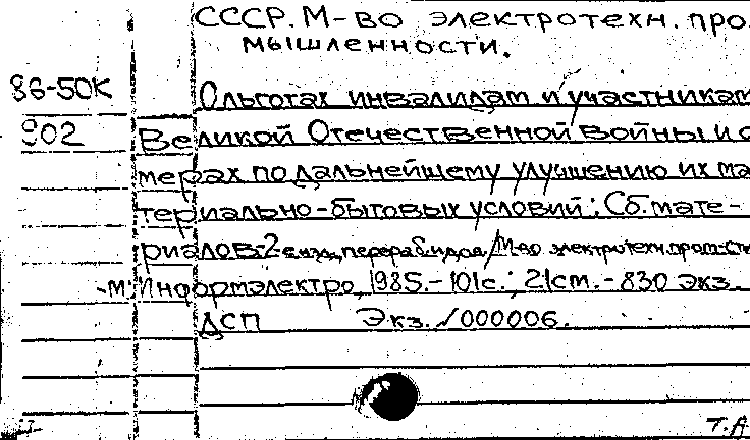 СССР. М-во электротехн. про
мышленности.
86-50К
902
О льготах инвалидам и участникам
Великой Отечественной войны и о
мерах по дальнейшему улучшению их ма
териально-бытовых условий: Сб. мате-
риалов.-2 е изд, перераб. и доп / М-во электротехн. пром-сти
-М: Информэлектро, 1985.-101с.; 21см.-830 экз.
ДСП Экз. №000006.
Т.А